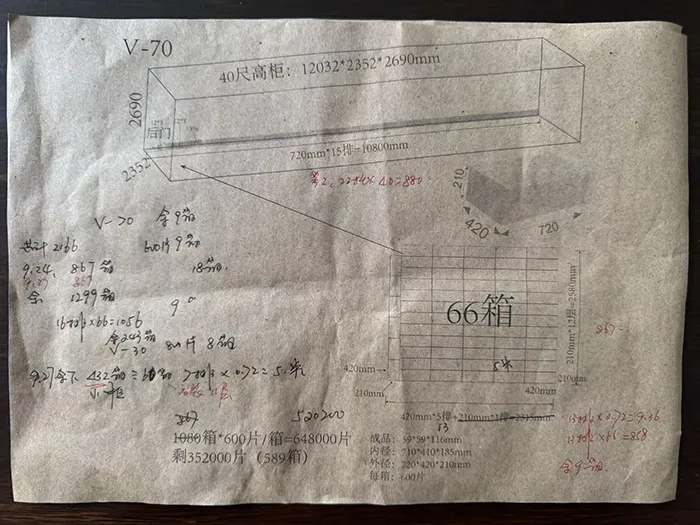 V-70
40尺高柜：12032*2352*2690mm
2690
2352
720mm*15排=10800mm
210
420
720
V-70 余9箱
共计2166
600片9箱
9.24. 867箱
18箱.
9.27 867
余 1299箱
9"
16排×66=1056
余243箱
V-30 8箱
9.27余下 432箱 7排×0.72=5.米
小柜
66箱
5米
867
420mm
210mm
210mm*12层=2580mm
210mm
420mm
420mm*5排+210mm*1排=2315mm
13
867
520200
1080箱*600片/箱=648000片
剩352000片（589箱）
成品：59*59*116mm
内径：710*410*185mm
外径：720*420*210mm
每箱：600片
13排×0.72=9.36
13排×66=858
余9箱